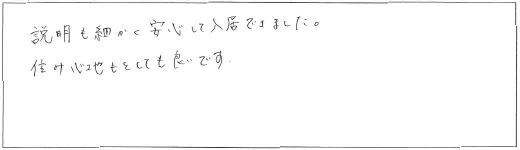 説明も細かく安心して入居できました。
住み心地もとても良いです.